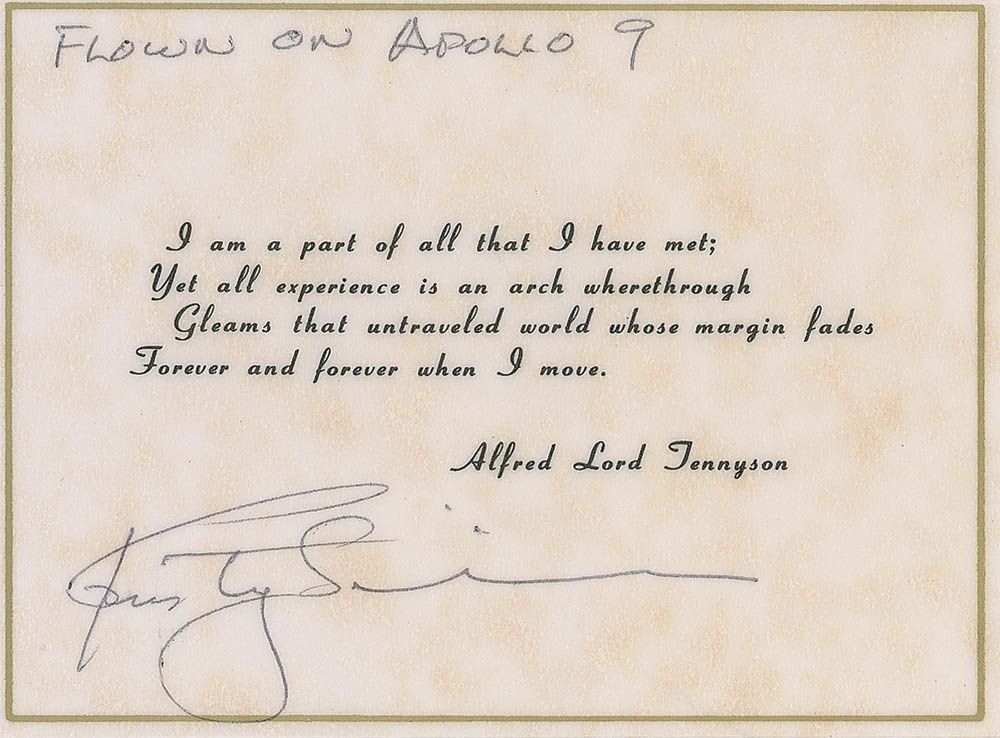 FLOWN ON APOLLO 9
I am a part of all that I have met;
Yet all experience is an arch wherethrough
Gleams that untraveled world whose margin fades
Forever and forever when I move.
Alfred Lord Tennyson
Rusty Schweickart